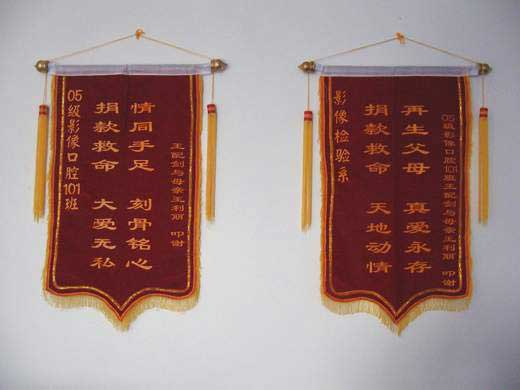 05级影像口腔101班
捐款救命 大爱无私
情同手足 刻骨铭心
王配剑与母亲 叩谢
影像检验系
捐款救命 天地动情
再生父母 真爱永存
05级影像口腔101班王配剑与母亲 叩谢